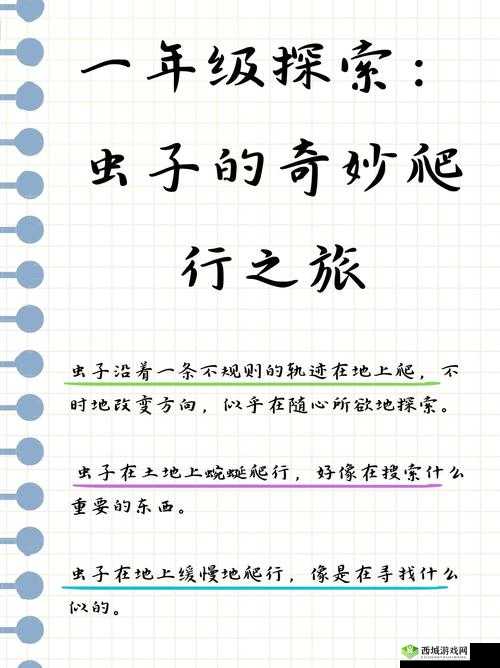 一年级探索：
虫子的奇妙爬
行之旅
虫子沿着一条不规则的轨迹在地上爬，不
时地改变方向，似乎在随心所欲地探索。
虫子在土地上蜿蜒爬行，好像在搜索什么
重要的东西。
虫子在地上缓慢地爬行，像是在寻找什么
似的。
西城游戏网